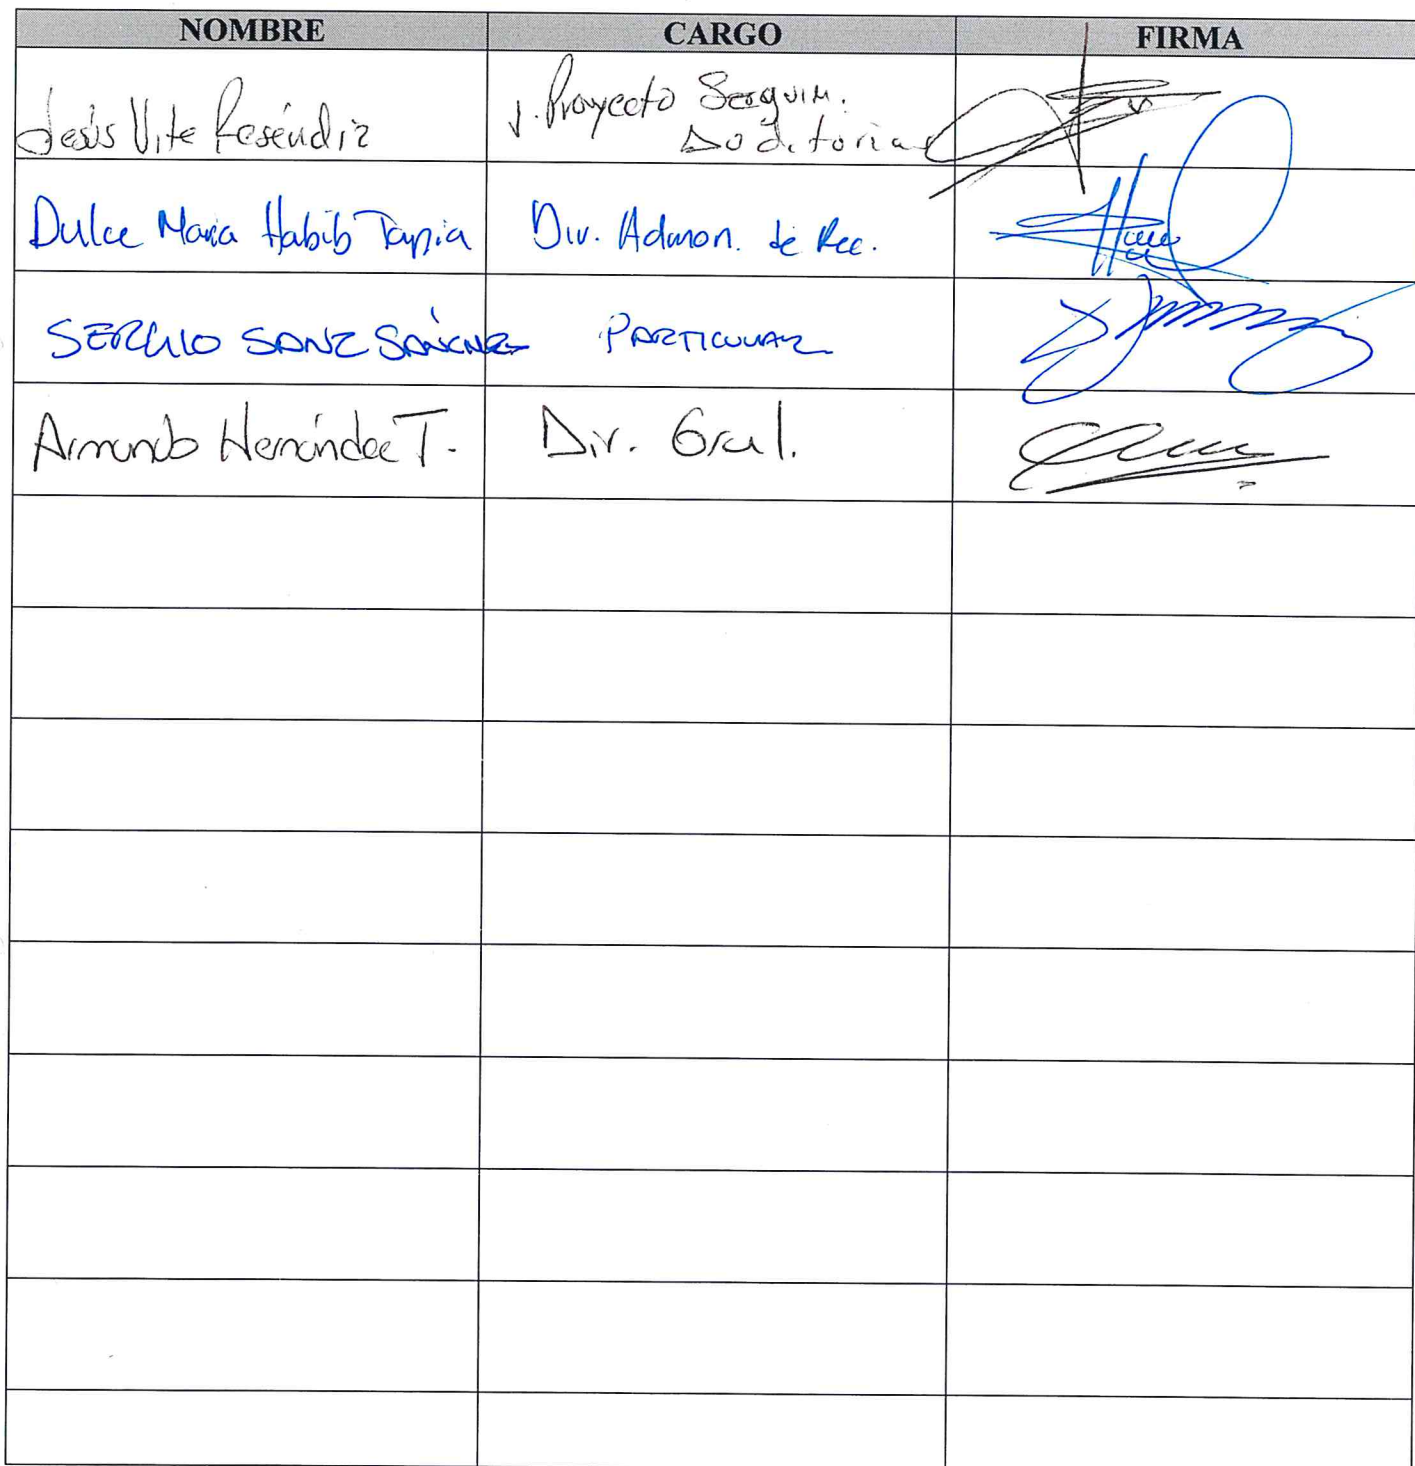 NOMBRE CARGO FIRMA
Jesús Vite Reséndiz J. Proyecto Seguim.
Auditoria
Dulce Maria Habib Tapia Div. Admon. de Rec.
SERGIO SANZ SÁNCHEZ PARTICULAR
Armando Hernández T. Dir. Gral.